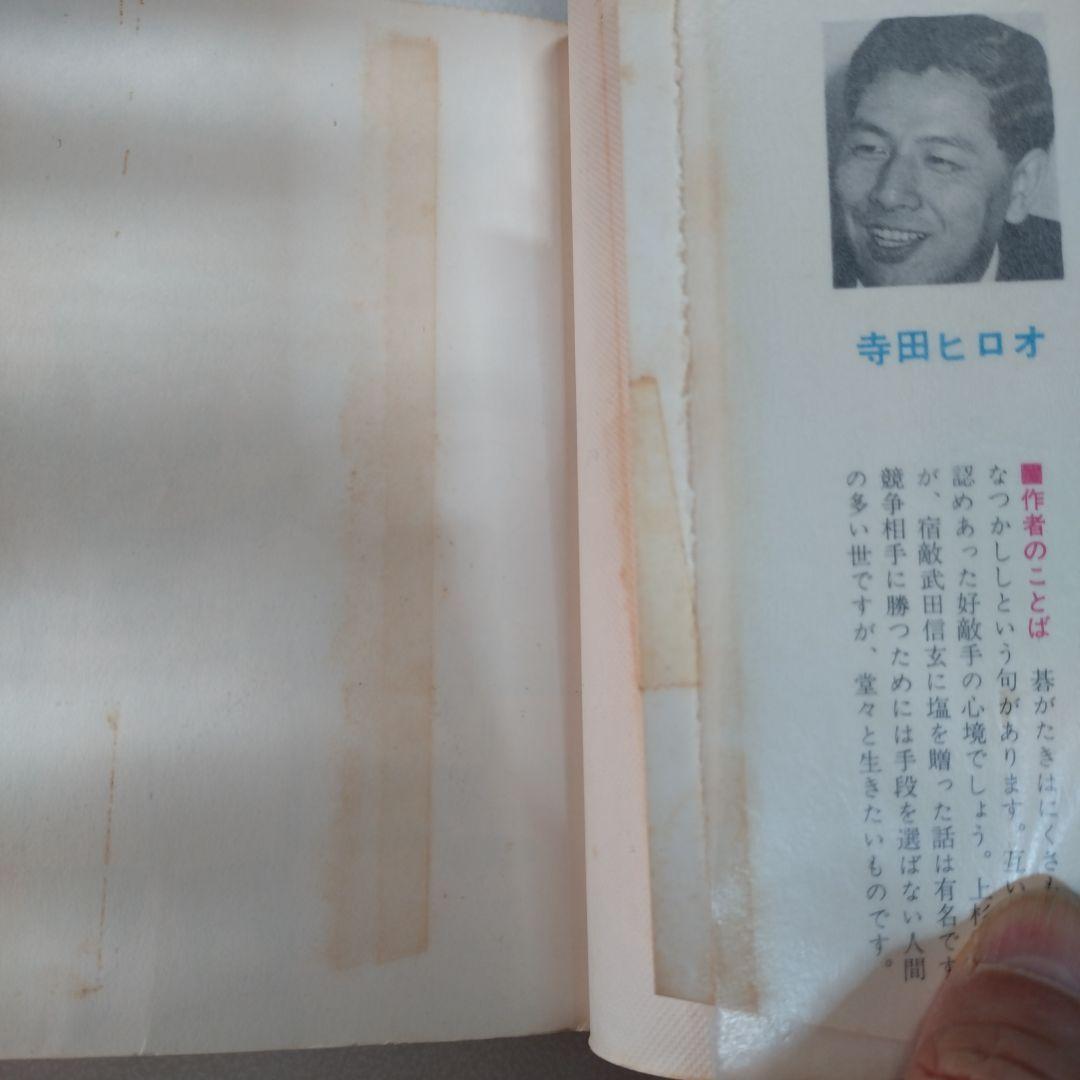 寺田ヒロオ
■作者のことば 碁がたきはにくさ
なつかししという句があります。互い
認めあった好敵手の心境でしょう。上杉
が、宿敵武田信玄に塩を贈った話は有名です
競争相手に勝つためには手段を選ばない人間
の多い世ですが、堂々と生きたいものです。